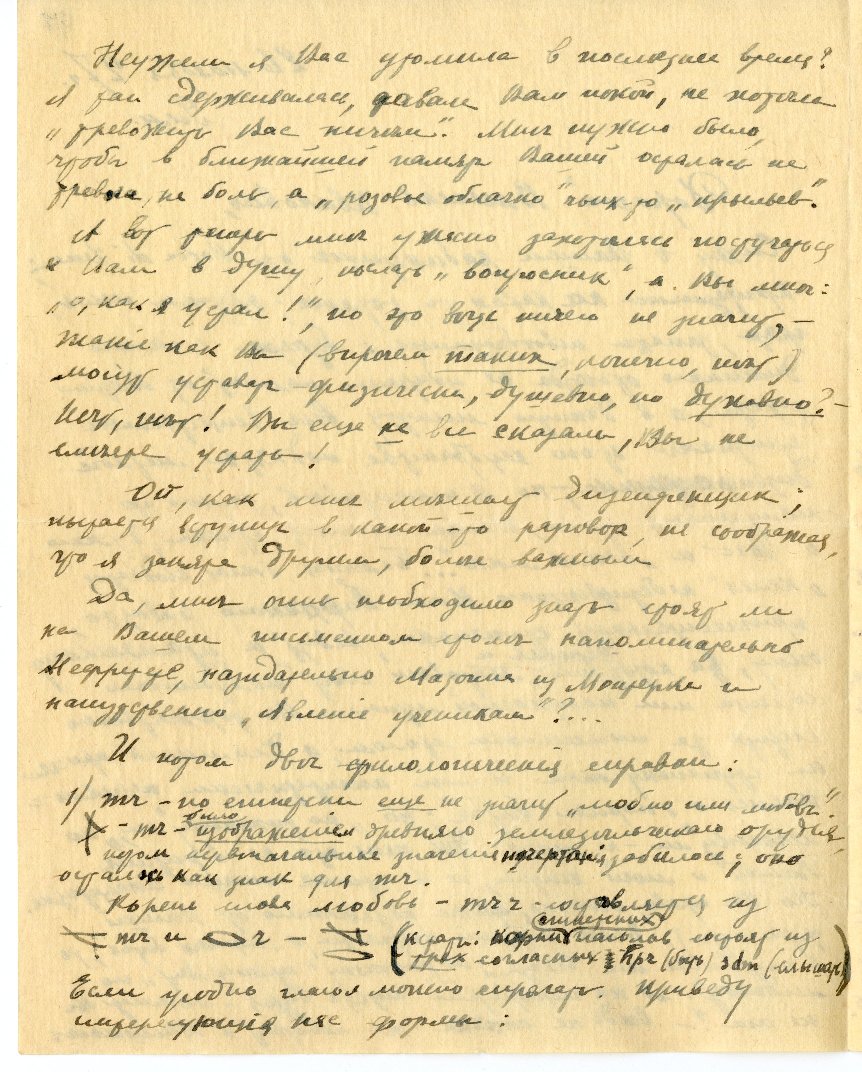 Неужели я Вас утомила в последнее время?
Я так сдерживалась, давала Вам покой, не хотела
„тревожить Вас ничем“. Мнѣ нужно было,
чтобы в ближайшей памяти Вашей осталась не
тревога, не боль, а „розовое облачко“ чьих-то „крыльев“.
А вот теперь мнѣ ужасно захотѣлось постучаться
к Вам в душу, послать „вопросник“, а Вы мнѣ:
„о, как я устал!“, но это вѣдь ничего не значит, –
такіе как Вы (впрочем таких, конечно, нѣт)
могут уставать физически, душевно, но духовно? –
Нѣт, нѣт! Вы еще не все сказали, Вы не
смѣете устать!
Ой, как мнѣ мѣшает дезинфекщик;
пытается вступить в какой-то разговор, не соображая,
что я занята другим, болѣе важным
Да, мнѣ очень необходимо знать стоят ли
на Вашем письменном столѣ напоминательно
Нефертити, назидательно Мадонна из и
напутственно „Явленіе ученикам“?....
И потом двѣ филологическія справки:
1) mr – по египетски еще не значит „люблю или любовь“.
– mr – было изображеніем древняго земледѣльческаго орудія,
потом первоначальное значеніе начертанія забылось; оно
осталось как знак для mr.
Корень слова любовь – mrr – составляется из
mr и r – (кстати: корни египетских глаголов состоят из
трех согласных ḫpr (быть) sdm (слышать))
Если угодно глагол можно спрягать. Приведу
интересующія нас формы: